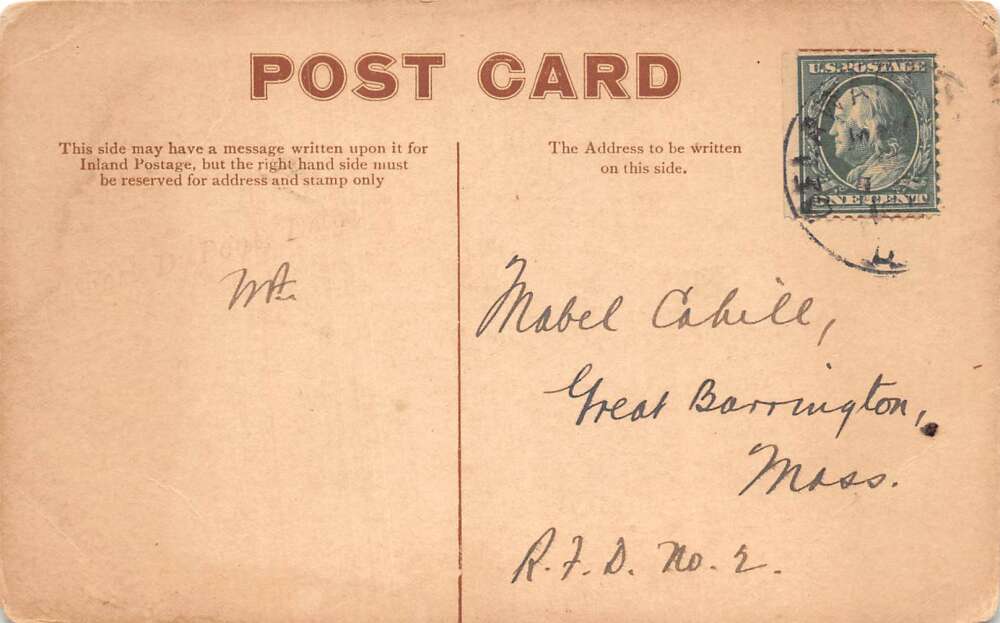 POST CARD
This side may have a message written upon it for
Inland Postage, but the right hand side must
be reserved for address and stamp only
The Address to be written
on this side.
U.S. POSTAGE
ONE CENT
Mabel Cahill,
Great Barrington,
Mass.
R.F.D. No. 2.